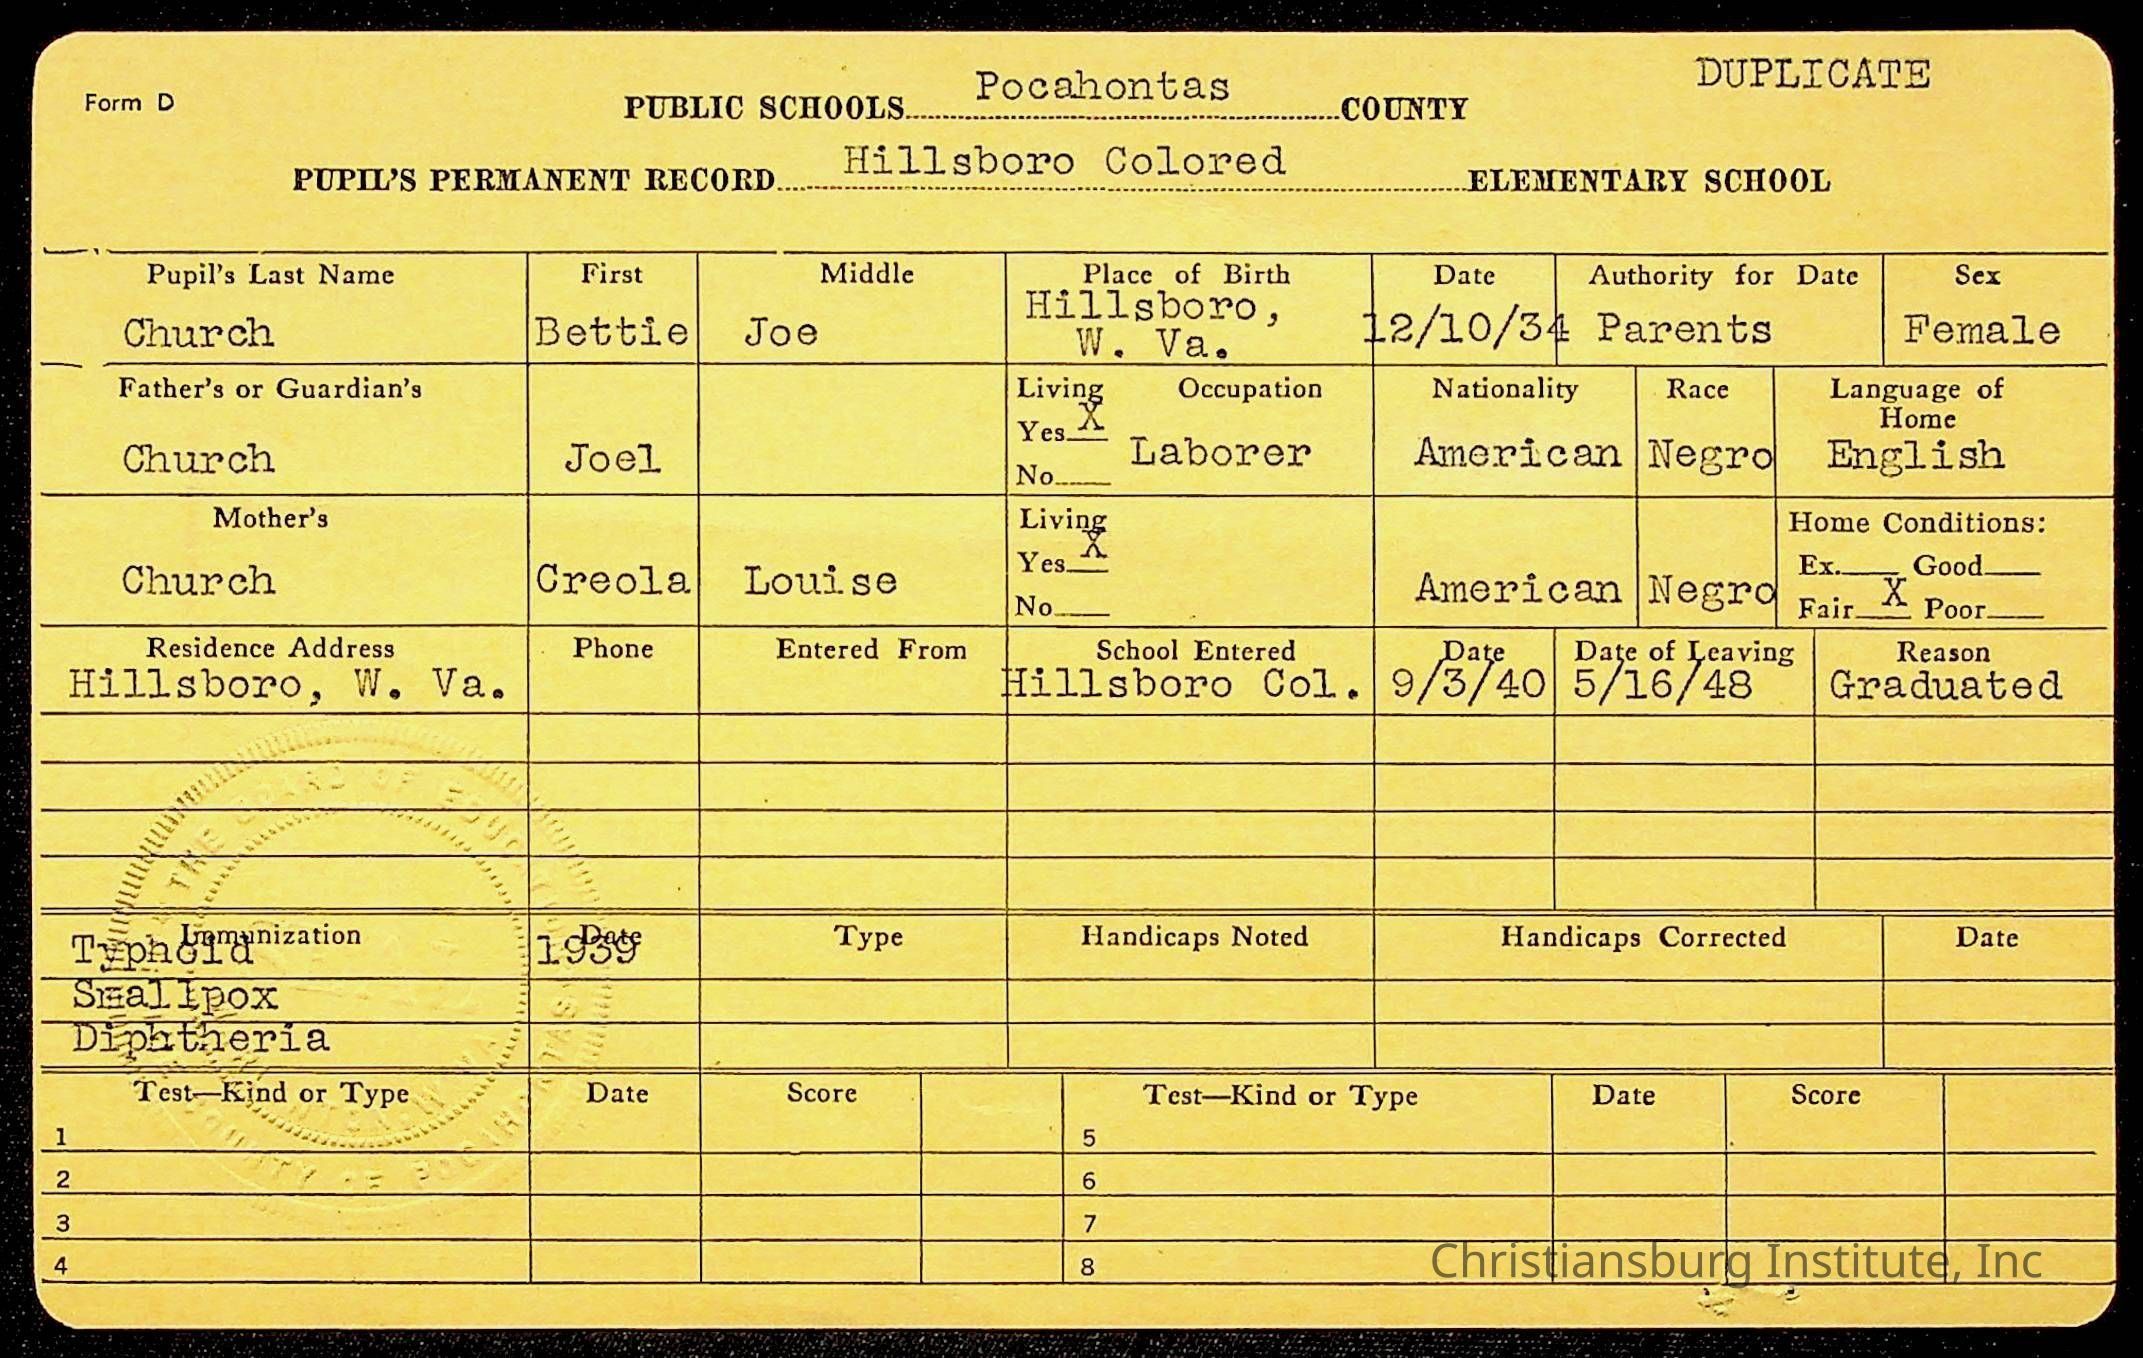 DUPLICATE
Form D
PUBLIC SCHOOLS Pocahontas COUNTY
PUPIL'S PERMANENT RECORD Hillsboro Colored ELEMENTARY SCHOOL
Pupil's Last Name First Middle Place of Birth Date Authority for Date Sex
Church Bettie Joe Hillsboro, W. Va. 12/10/34 Parents Female
Father's or Guardian's Living Occupation Nationality Race Language of Home
Yes X
Church Joel Laborer American Negro English
No
Mother's Living Home Conditions:
Yes X Ex. Good
Church Creola Louise American Negro
No Fair X Poor
Residence Address Phone Entered From School Entered Date Date of Leaving Reason
Hillsboro, W. Va. Hillsboro Col. 9/3/40 5/16/48 Graduated
Immunization Date Type Handicaps Noted Handicaps Corrected Date
Typhoid 1939
Smallpox
Diphtheria
Test—Kind or Type Date Score Test—Kind or Type Date Score
1 5
2 6
3 7
4 8
THE BOARD OF EDUCATION
COUNTY OF POCAHONTAS
Christiansburg Institute, Inc